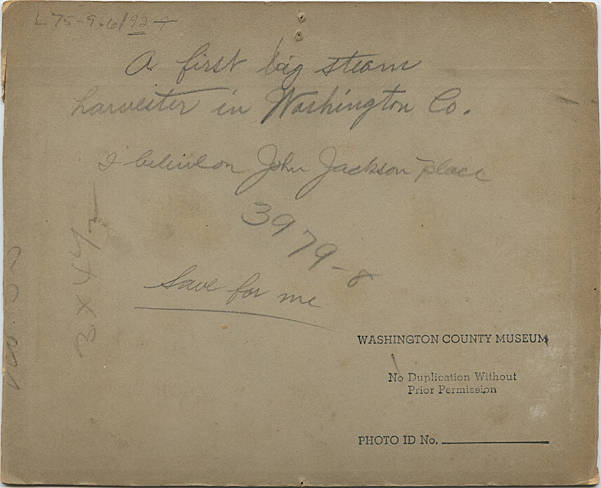 L75-9.6/92-4
A first big steam
harvester in Washington Co.
I believe on John Jackson place
3979-8
Save for me
3 x 4 1/2
WASHINGTON COUNTY MUSEUM
No Duplication Without
Prior Permission
PHOTO ID No.